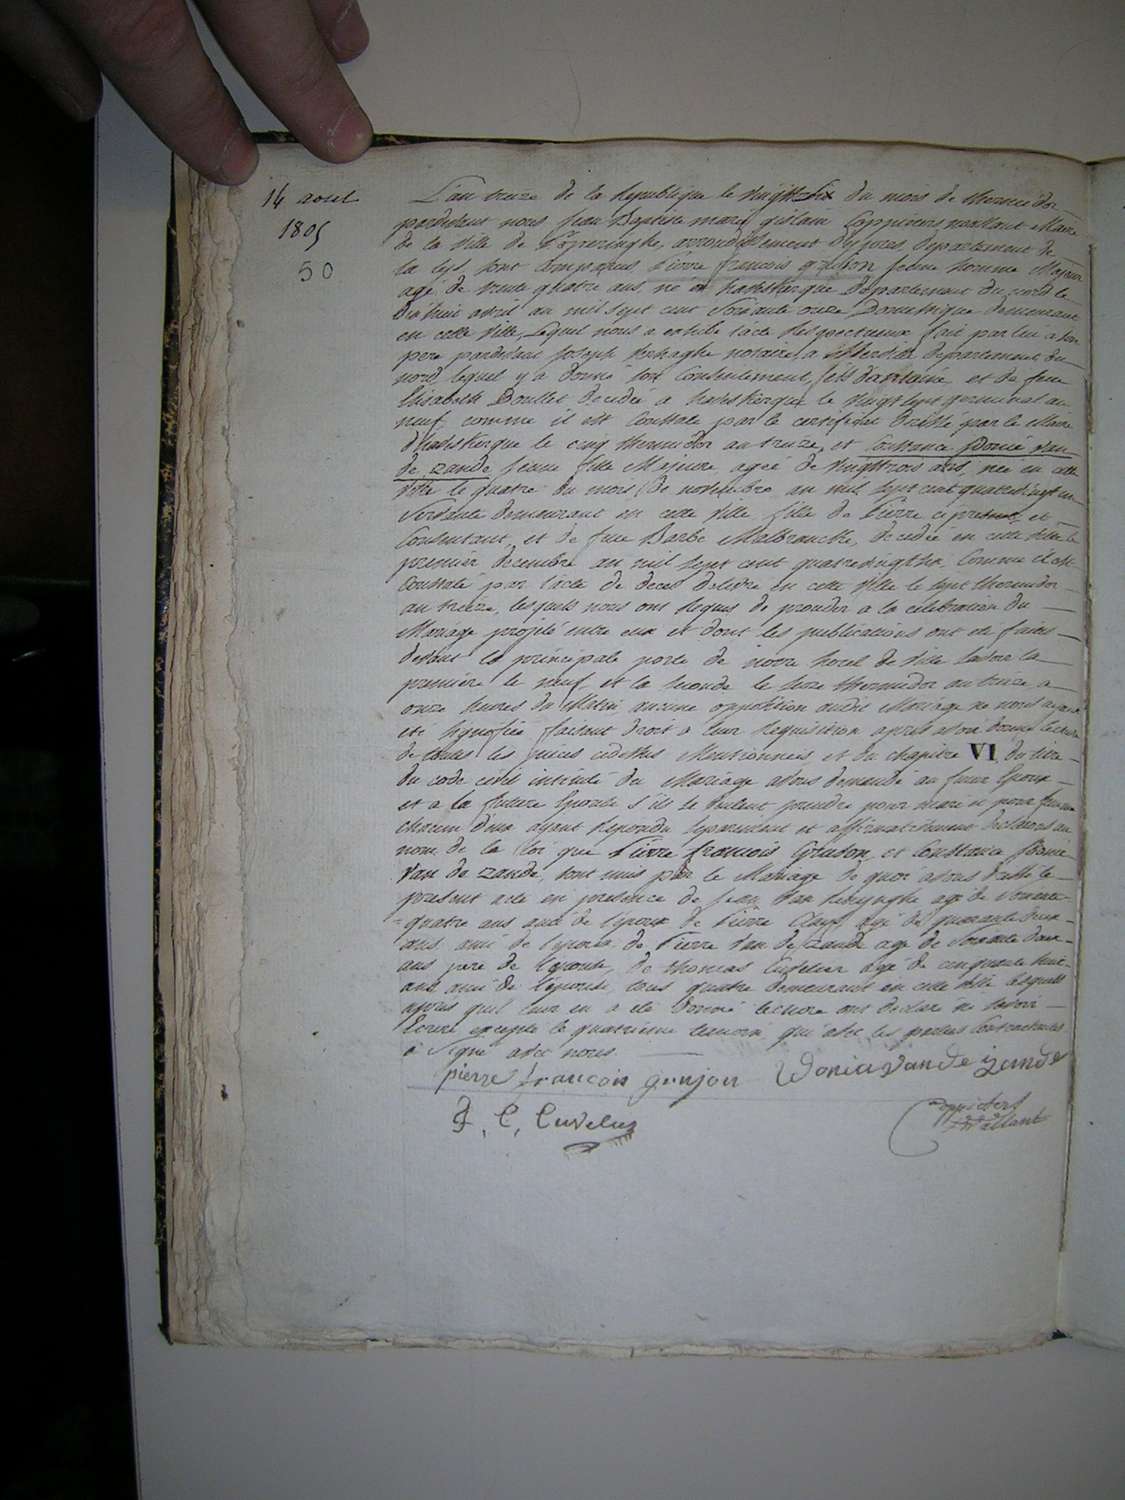 14 aout
1805
50
L'an treize de la Republique le vingt six du mois de thermidor
pardevant nous Jean Baptiste marie gislain Coppieters wallant Maire
de la ville de Poperinghe, arrondissement d'ypres, departement de
la lys, sont comparus pierre francois jeune homme Majeur
agé de trente quatre ans, né a hazebrgue Departement du nord le
avril an mil sept cent soixante onze Domestique demeurant
en cette ville, lequel nous a exhibé l'acte respectueux fait par lui a son
pere pardevant Joseph notaire a departement du
nord, lequel y a donné son Consentement, fils et de feue
Elisabeth Boullet decedée a le vingt sept germinal an
neuf, comme il est constaté par le certificat delivré par le Maire
le cinq thermidor an treize, et Constance Donie van
de zande, jeune fille Majeure, ageé de vingt trois ans, née en cette
ville le quatre du mois de novembre an mil sept cent quatre vingt un
Servante demeurant en cette ville fille de Pierre ci present et
Consentant, et de feue Barbe Malbrancke, decedée en cette ville le
premier decembre an mil sept cent quatre vingt comme il est
constaté par l'acte de deces delivré en cette ville le sept thermidor
an treize, lesquels nous ont requis de proceder a la célébration du
Mariage projeté entre eux et dont les publications ont été faites
devant la principale porte de notre hotel de ville savoir la
premiere le neuf et la seconde le seize thermidor an treize, a
onze heures du Matin aucune opposition audit Mariage ne nous ayant
eté signifiée faisant droit a leur requisition apres avoir donné lecture
de toutes les pieces cidessus Mentionnées et du chapitre VI du titre
du code civil intitulé du Mariage avons demandé au futur Epoux
et a la future Epouse s'ils se veulent prendre pour mari et pour femme
chacun d'eux ayant repondu separement et affirmativement declarons au
nom de la loi que Pierre francois et Constance Donie
Van de zande, sont unis par le Mariage de quoi avons dressé le
present acte en presence de Jean Van agé de
quatre ans ami de l'epoux de Pierre agé de quarante deux
ans ami de l'epoux, de Pierre Van de zande agé de soixante
ans pere de l'epouse, de thomas Cuvelier agé de cinquante
ans ami de l'épouse, tous quatre demeurant en cette ville lesquels
apres qu'il leur en a eté donné lecture ont declaré ne savoir
Ecrire excepté le quatrieme temoin qui avec les parties Contractantes
a signé avec nous.
pierre francois gonjon Donia van de zande
C, Cuvelier
Coppieters
Wallant